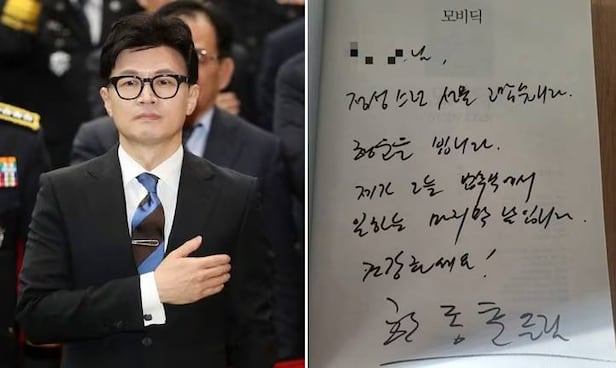 모비딕
님,
정성스런 선물 고맙습니다.
행운을 빕니다.
제가 오늘 법무부에서
일하는 마지막 날입니다.
건강하세요!
한동훈 드림